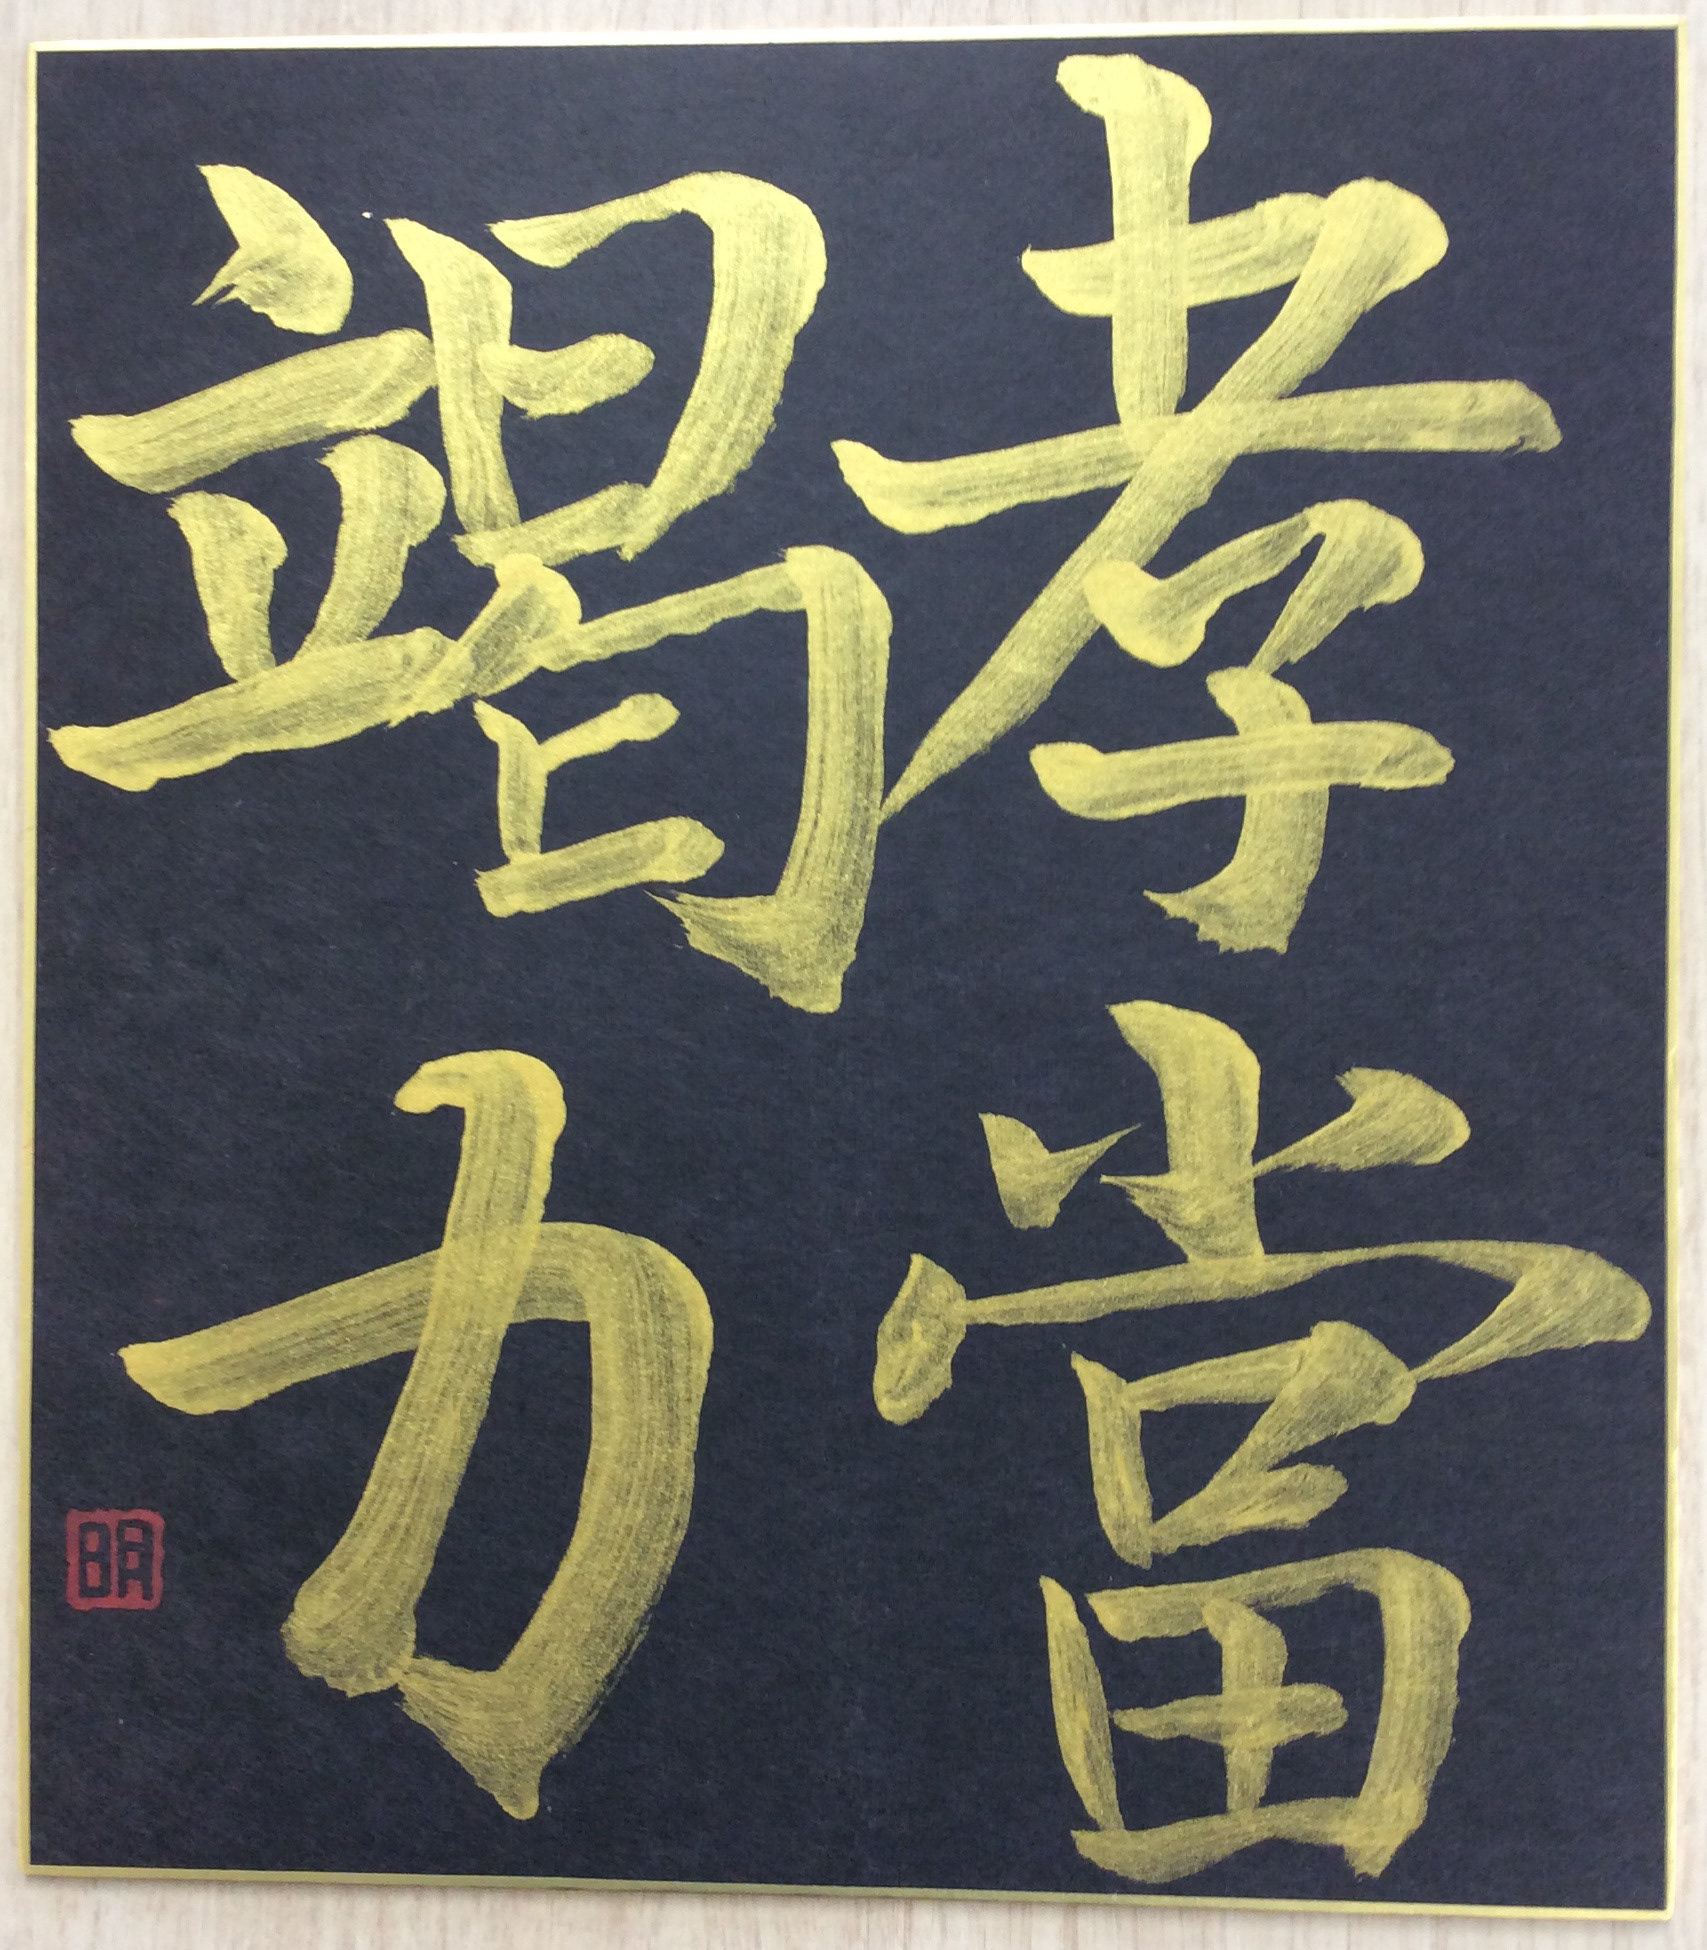 孝當
竭力
明